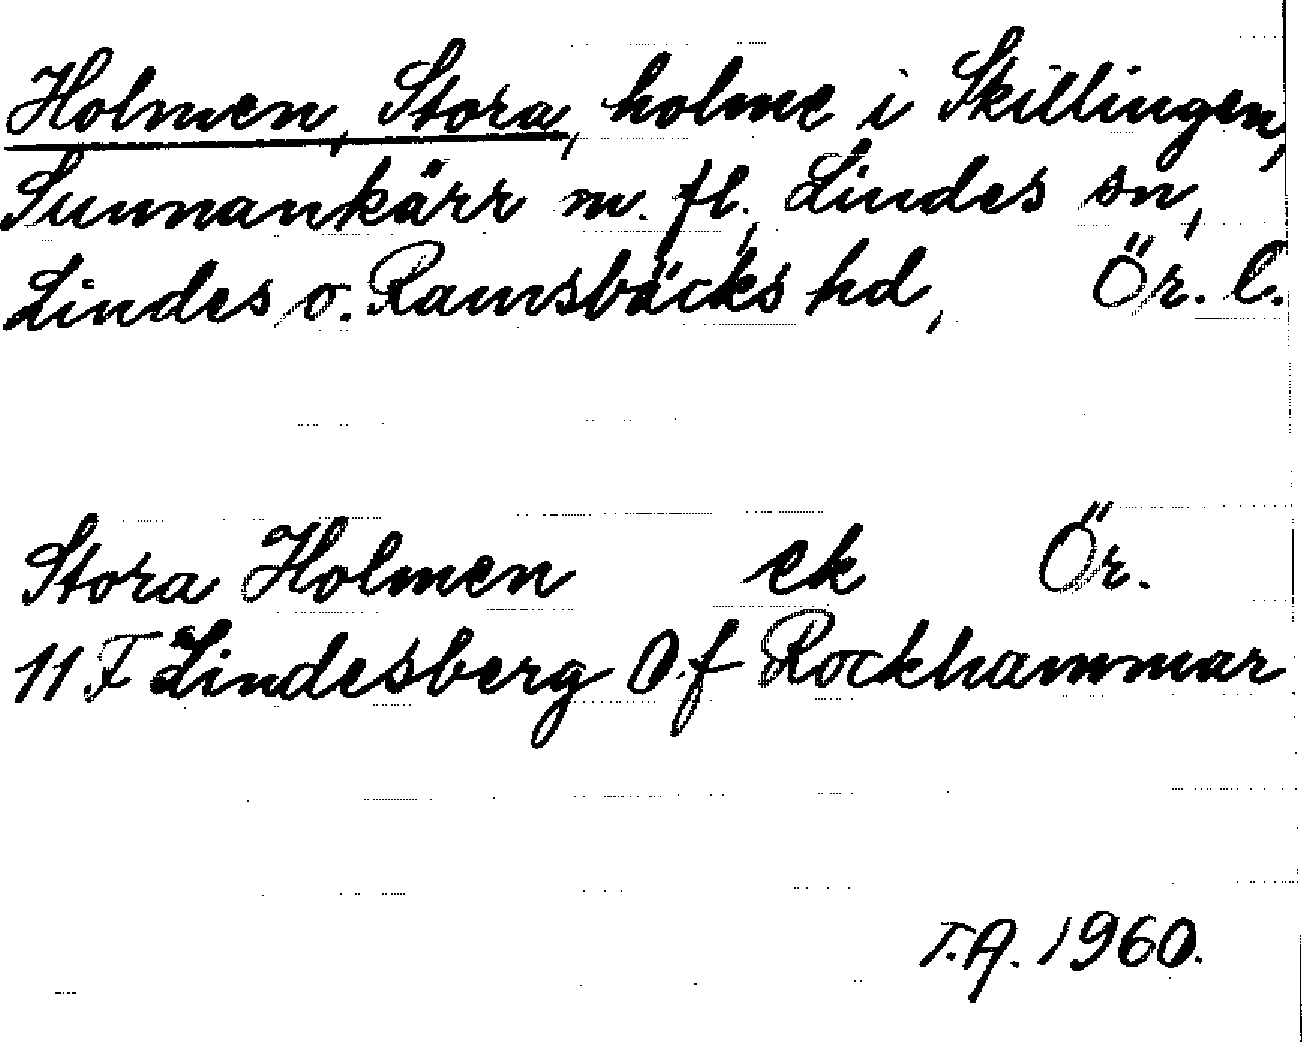 Holmen, Stora, holme i Skillingen,
Sunnankärr m. fl., Lindes sn,
Lindes o. Ramsbäcks hd, Ör. l.
Stora Holmen ek Ör.
11 F Lindesberg O f Rockhammar
T.A. 1960.